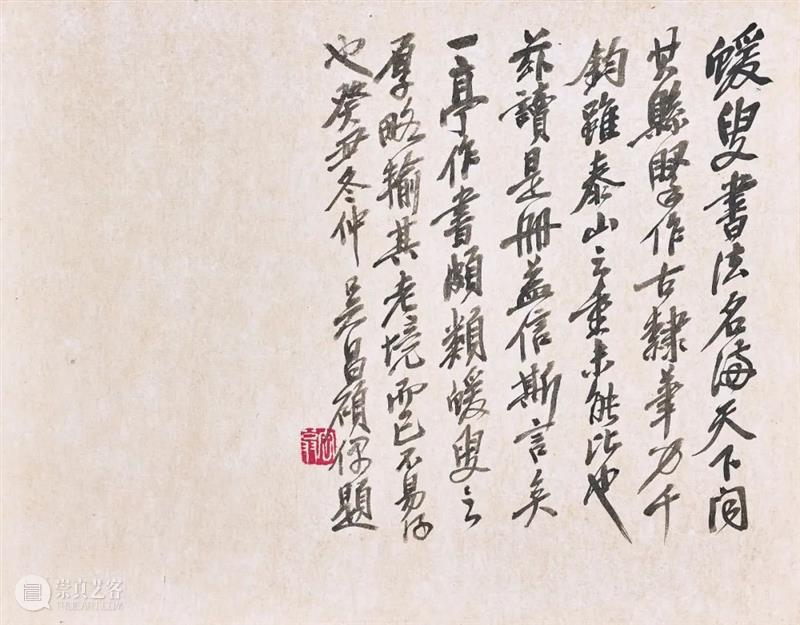 蝯叟書法名滿天下聞
其縣擘作古隸筆力千
鈞雖泰山之重未能比也
茲讀是冊益信斯言矣
一亭作書頗類蝯叟之
厚略輸其老境而已不易得
也癸丑冬仲吳昌碩偶題
崇真艺客
TRUEART.COM